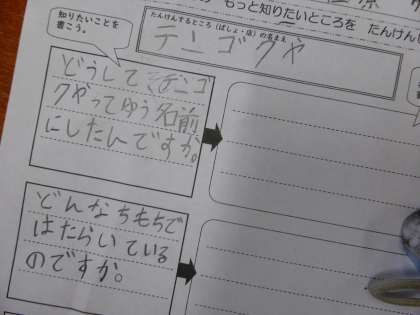 もっと知りたいところを たんけんし
知りたいことを
書こう。
たんけんするところ（ばしょ・店）の名まえ
テンゴクや
どうして、テンゴ
クやってゆう名前
にしたんですか。
どんなちもちで
はたらいている
のですか。